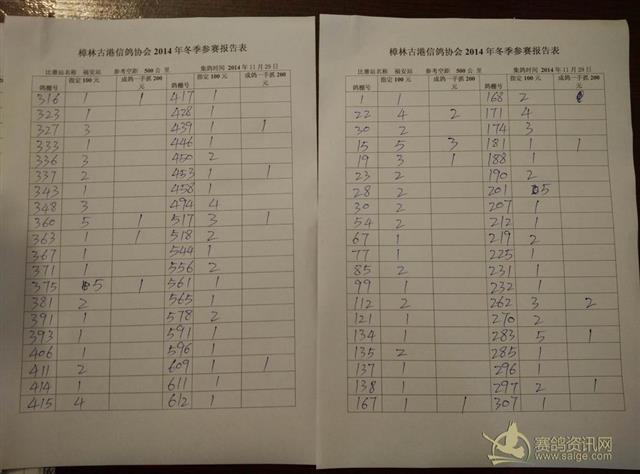 樟林古港信鸽协会 2014 年冬季参赛报告表
比赛站名称 福安站 参考空距 500 公里 集鸽时间 2014 年 11 月 29 日
鸽棚号 指定 100 元 成鸽一手抓 200 元 鸽棚号 指定 100 元 成鸽一手抓 200 元
316 1 1 417 1
323 1 428 1
327 3 439 1 1
333 1 446 1
336 3 450 2
337 2 453 1 1
343 1 458 1
348 3 494 4
360 5 1 517 3 1
363 1 1 518 2
367 1 544 1
371 1 556 2
375 5 1 561 1
381 2 565 1
391 1 578 2
393 1 591 1
406 1 596 1
411 2 609 1 1
414 1 611 1
415 4 612 1
樟林古港信鸽协会 2014 年冬季参赛报告表
比赛站名称 福安站 参考空距 500 公里 集鸽时间 2014 年 11 月 29 日
鸽棚号 指定 100 元 成鸽一手抓 200 元 鸽棚号 指定 100 元 成鸽一手抓 200 元
1 1 168 2
22 4 2 171 4
30 2 174 3
15 5 3 181 1 1
19 3 1 188 1
23 2 190 2
28 2 201 5
30 2 207 1
54 2 212 1
67 1 219 2
77 1 225 1
85 2 231 1
99 1 232 1
112 2 262 3 2
121 1 270 2
134 1 283 5 1
135 2 285 1
137 1 296 1
138 1 297 2 1
167 1 1 307 1
赛鸽资讯网
www.saige.com